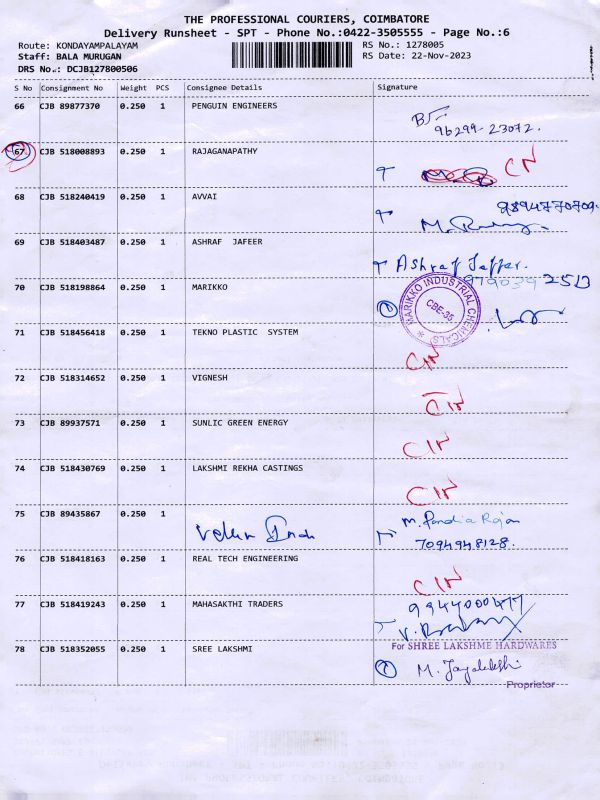 THE PROFESSIONAL COURIERS, COIMBATORE
Delivery Runsheet - SPT - Phone No.:0422-3505555 - Page No.:6
Route: KONDAYAMPALAYAM RS No.: 1278005
Staff: BALA MURUGAN RS Date: 22-Nov-2023
DRS No.: DCJB127800506
S No Consignment No Weight PCS Consignee Details Signature
66 CJB 89877370 0.250 1 PENGUIN ENGINEERS
96299-23072.
67 CJB 518008893 0.250 1 RAJAGANAPATHY CN
68 CJB 518240419 0.250 1 AVVAI 9894770709.
69 CJB 518403487 0.250 1 ASHRAF JAFEER Ashraf Jaffer.
70 CJB 518198864 0.250 1 MARIKKO MARIKKO INDUSTRIAL CHEMICALS CBE-35
71 CJB 518456418 0.250 1 TEKNO PLASTIC SYSTEM CIN
72 CJB 518314652 0.250 1 VIGNESH CIN
73 CJB 89937571 0.250 1 SUNLIC GREEN ENERGY CIN
74 CJB 518430769 0.250 1 LAKSHMI REKHA CASTINGS CIN
75 CJB 89435867 0.250 1 M. Pandia Rajan
7094948128.
76 CJB 518418163 0.250 1 REAL TECH ENGINEERING CIN
77 CJB 518419243 0.250 1 MAHASAKTHI TRADERS 9944000477
78 CJB 518352055 0.250 1 SREE LAKSHMI For SHREE LAKSHME HARDWARES
Proprietor